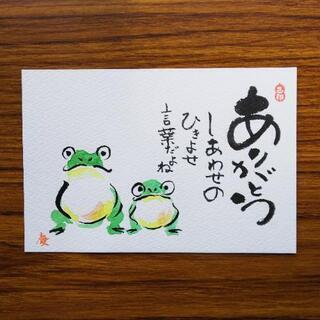 ありがとう
しあわせの
ひきよせ
言葉だよね